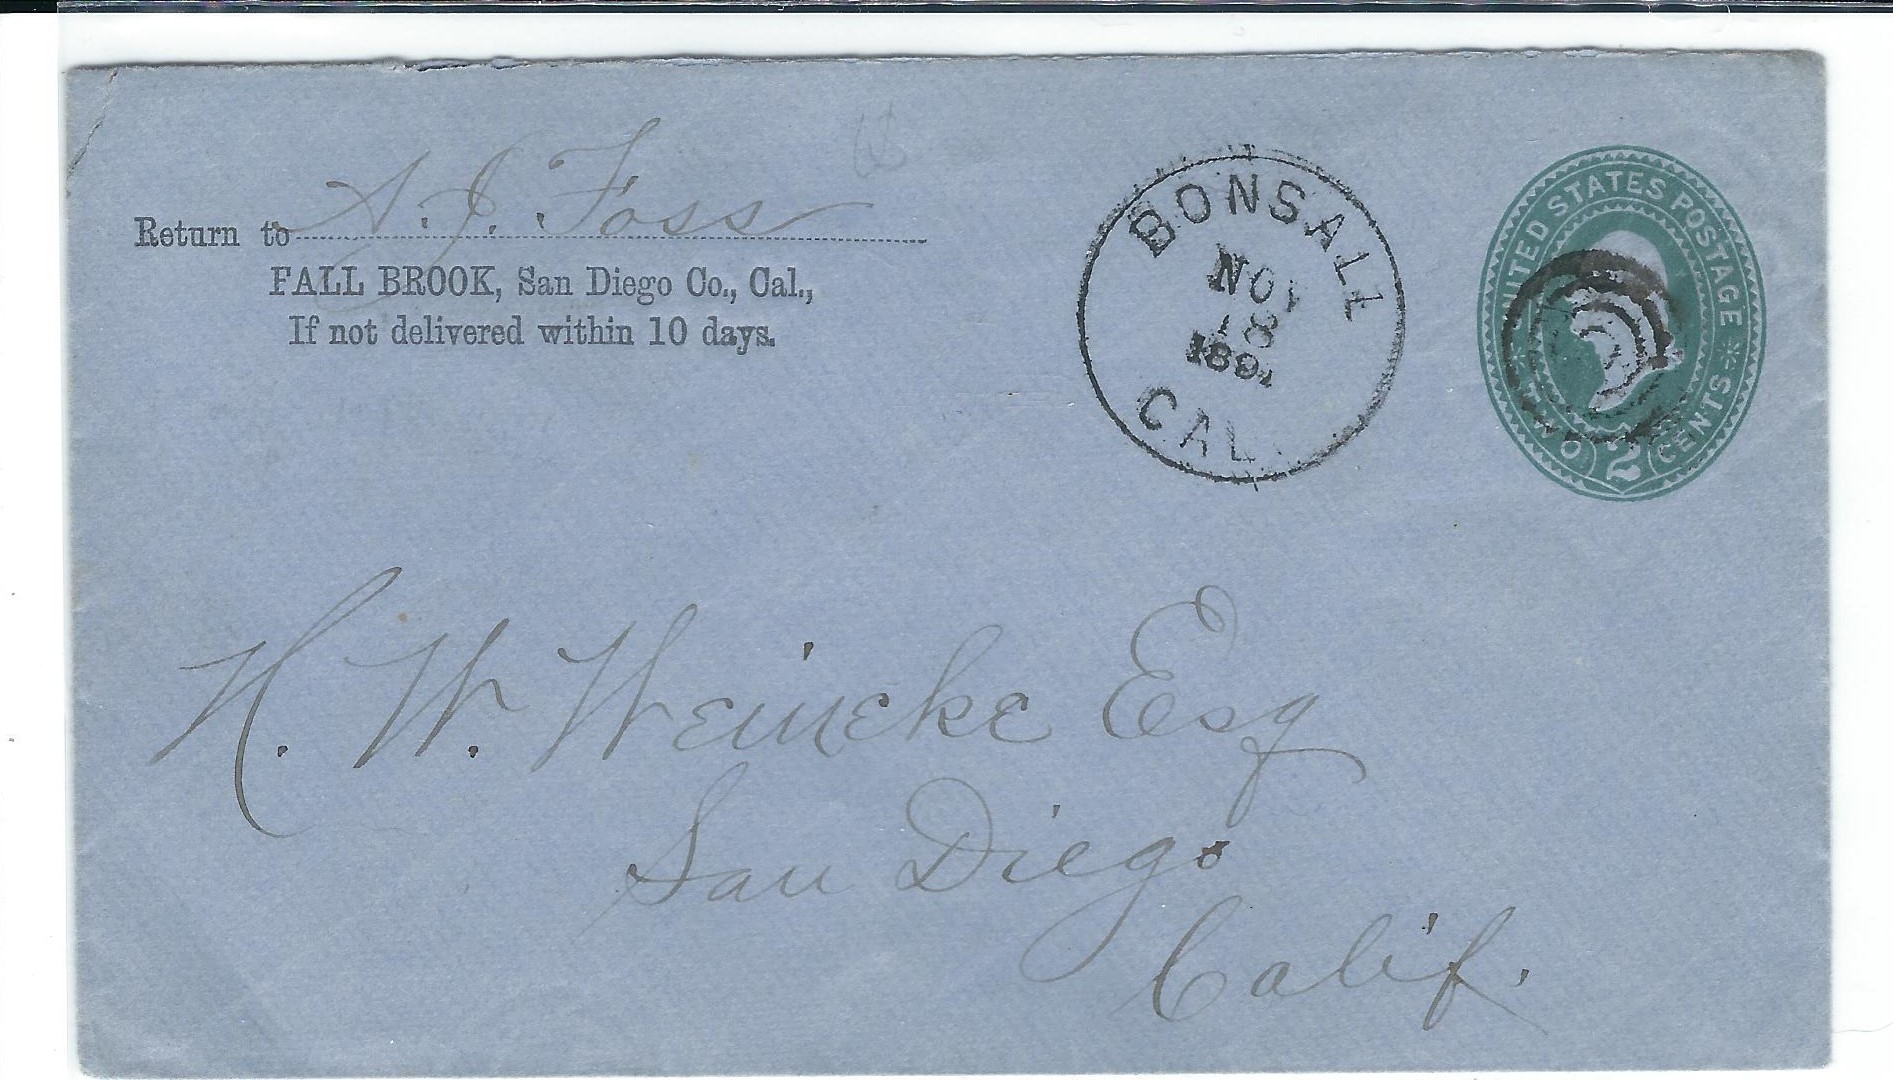 Return to A. J. Foss
FALL BROOK, San Diego Co., Cal.,
If not delivered within 10 days.
BONSALL
NOV
18
1891
CAL.
UNITED STATES POSTAGE
TWO 2 CENTS
H. W. Weineke Esq
San Diego
Calif.